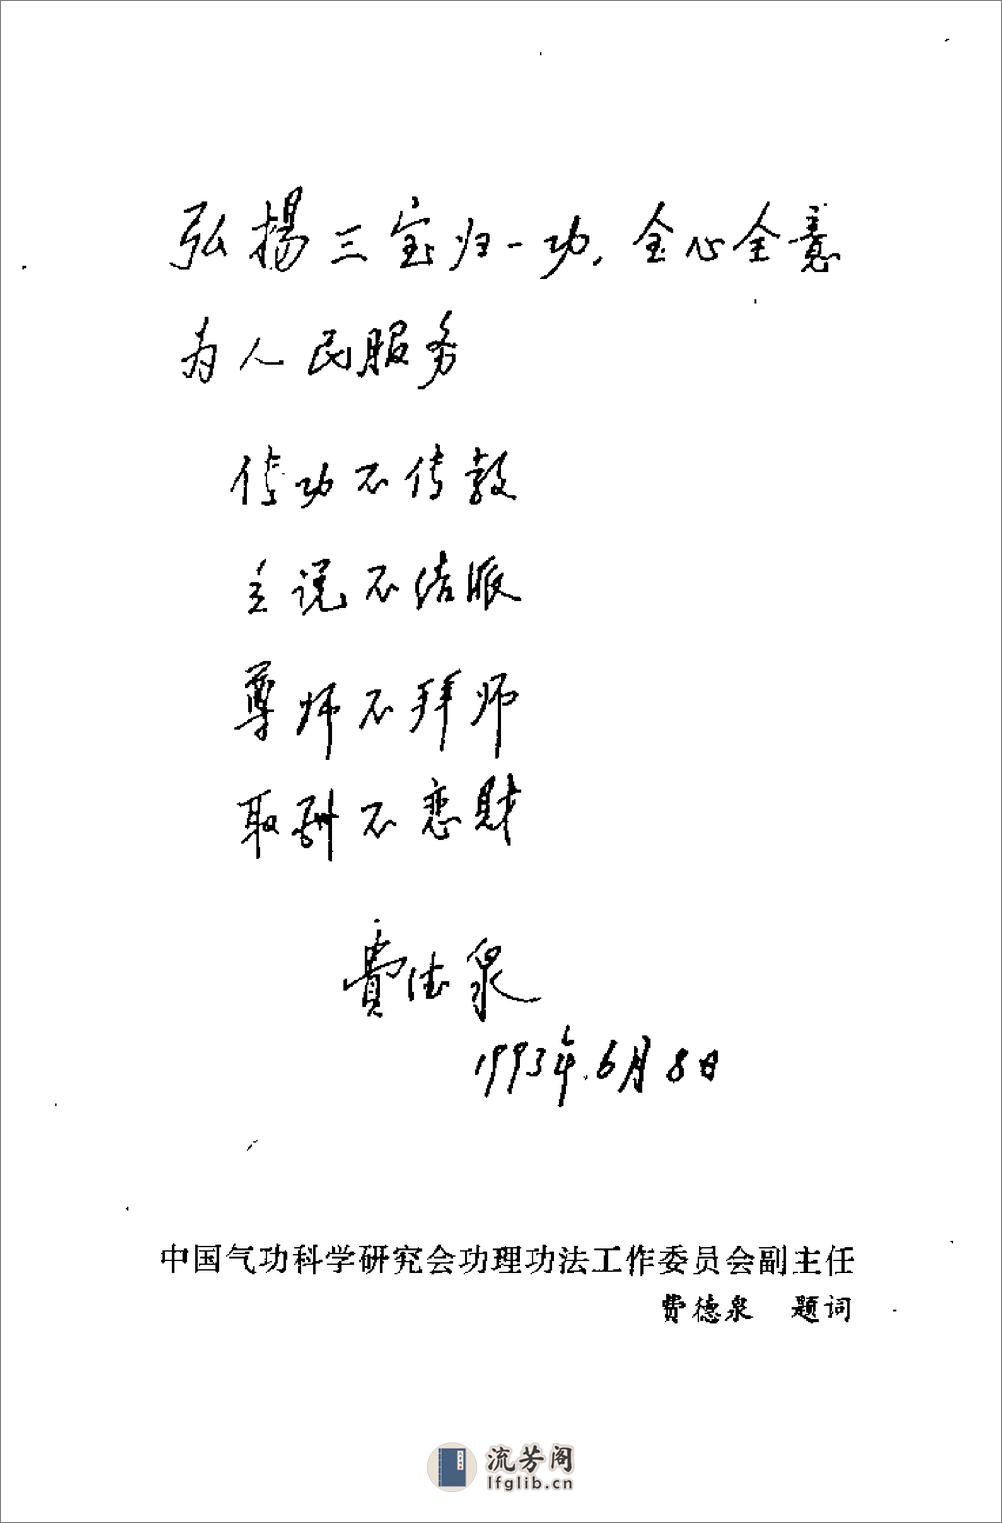 弘揚三宝归一功，全心全意
为人民服务
传功不传教
立说不结派
尊师不拜师
取酬不恋财
費德泉
1993年.6月8日
中国气功科学研究会功理功法工作委员会副主任
费德泉 题词
流芳阁
lfglib.cn